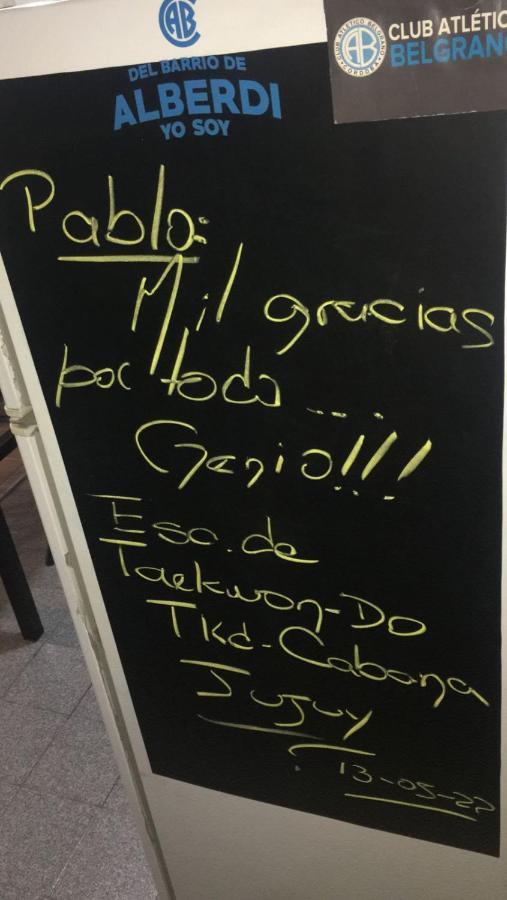 CAB
DEL BARRIO DE
ALBERDI
YO SOY
CLUB ATLÉTICO BELGRANO
CORDOBA
CLUB ATLÉTIC
BELGRANO
Pablo:
Mil gracias
por todo ....
Genio!!!
Esc. de
Taekwon-Do
Tkd-Cabana
Jujuy
13-05-22